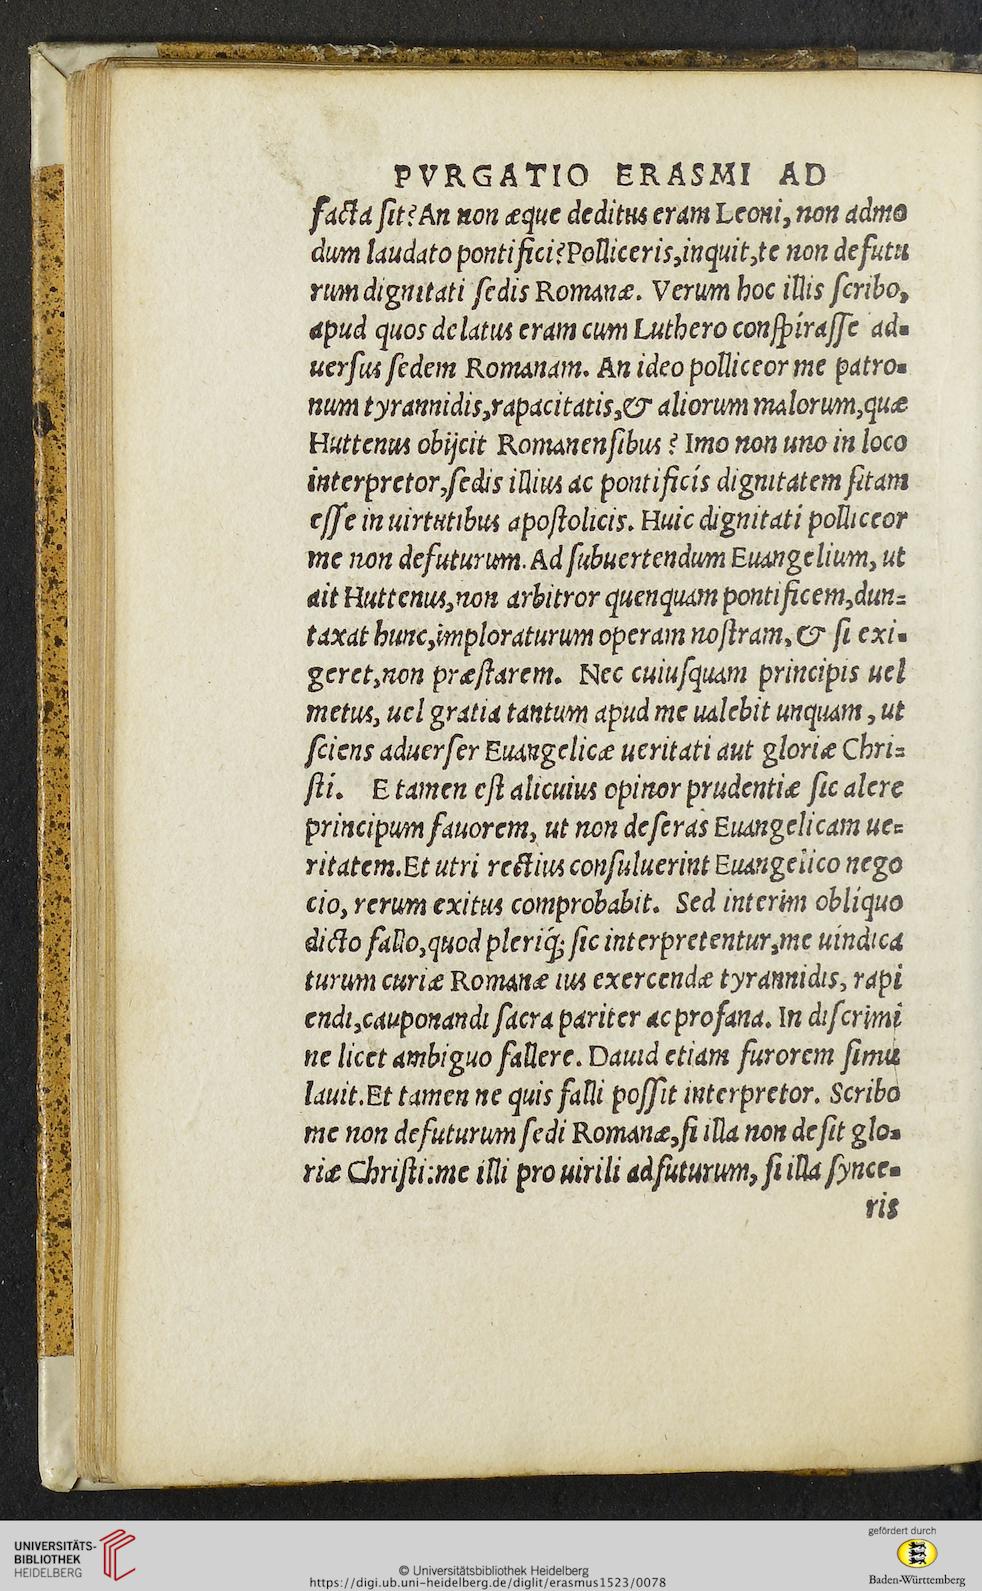 PVRGATIO ERASMI AD
facta ſit? An non æque deditus eram Leoni, non admo
dum laudato pontifici? Polliceris, inquit, te non defutu
rum dignitati ſedis Romanæ. Verum hoc illis ſcribo,
apud quos delatus eram cum Luthero conſpiraſſe ad-
uerſus ſedem Romanam. An ideo polliceor me patro-
num tyrannidis, rapacitatis, & aliorum malorum, quæ
Huttenus obijcit Romanenſibus? Imo non uno in loco
interpretor, ſedis illius ac pontificis dignitatem ſitam
eſſe in uirtutibus apoſtolicis. Huic dignitati polliceor
me non defuturum. Ad ſubuertendum Euangelium, ut
ait Huttenus, non arbitror quenquam pontificem, dun-
taxat hunc, imploraturum operam noſtram, & ſi exi-
geret, non præſtarem. Nec cuiuſquam principis uel
metus, uel gratia tantum apud me ualebit unquam, ut
ſciens aduerſer Euangelicæ ueritati aut gloriæ Chri-
ſti. E tamen eſt alicuius opinor prudentiæ ſic alere
principum fauorem, ut non deſeras Euangelicam ue-
ritatem. Et utri rectius conſuluerint Euangelico nego
cio, rerum exitus comprobabit. Sed interim obliquo
dicto fallo, quod pleriq; ſic interpretentur, me uindica
turum curiæ Romanæ ius exercendæ tyrannidis, rapi
endi, cauponandi ſacra pariter ac profana. In diſcrimi
ne licet ambiguo fallere. Dauid etiam furorem ſimu
lauit. Et tamen ne quis falli poſſit interpretor. Scribo
me non defuturum ſedi Romanæ, ſi illa non deſit glo-
riæ Chriſti: me illi pro uirili adfuturum, ſi illa ſynce-
ris
UNIVERSITÄTS-
BIBLIOTHEK
HEIDELBERG
© Universitätsbibliothek Heidelberg
https://digi.ub.uni-heidelberg.de/diglit/erasmus1523/0078
gefördert durch
Baden-Württemberg